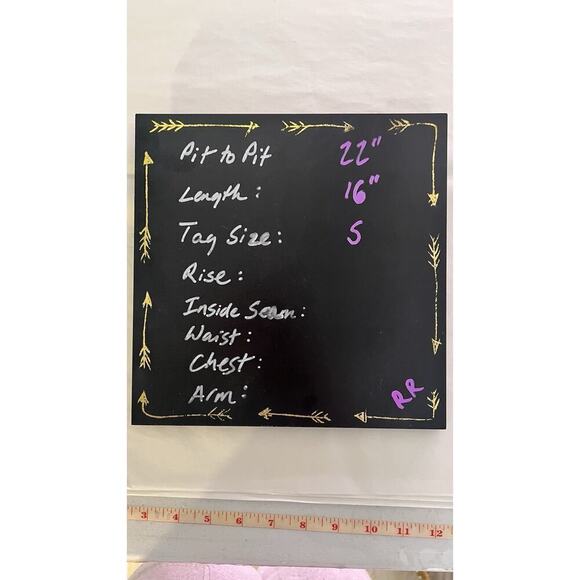 Pit to Pit 22"
Length: 16"
Tag Size: S
Rise:
Inside Seam:
Waist:
Chest:
Arm:
RR
3 4 5 6 7 8 9 10 11 12